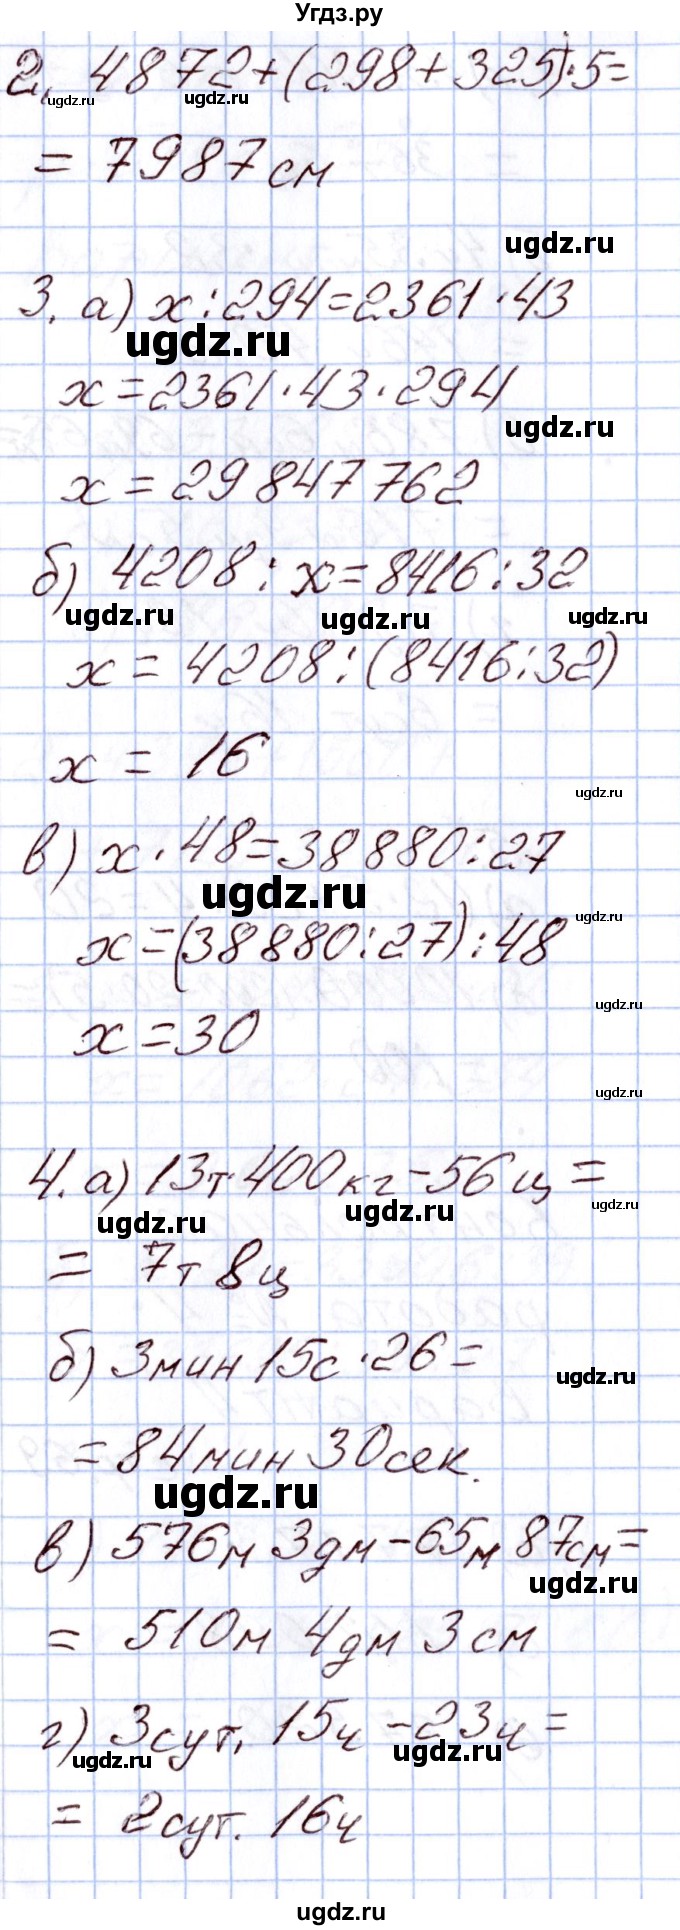 Угдз.ру
2. 4872+(298+325)·5=
ugdz.ru ugdz.ru
= 7987см
ugdz.ru
3. а) х:294=2361·43
ugdz.ru
х=2361·43·294
ugdz.ru
х = 29847762
б) 4208 : х=8416:32
ugdz.ru ugdz.ru ugdz.ru
х = 4208:(8416:32)
х = 16
ugdz.ru
в) х · 48=38880:27
ugdz.ru
ugdz.ru
х=(38880:27):48
ugdz.ru
х=30
ugdz.ru
4. а) 13т 400кг-56ц =
ugdz.ru ugdz.ru ugdz.ru
= 7т 8ц
б) 3мин 15с·26=
ugdz.ru
=84мин 30сек.
ugdz.ru
в) 576м 3дм-65м 87см=
ugdz.ru
= 510м 4дм 3см
г) 3сут. 15ч-23ч=
ugdz.ru ugdz.ru
= 2сут. 16ч
ugdz.ru